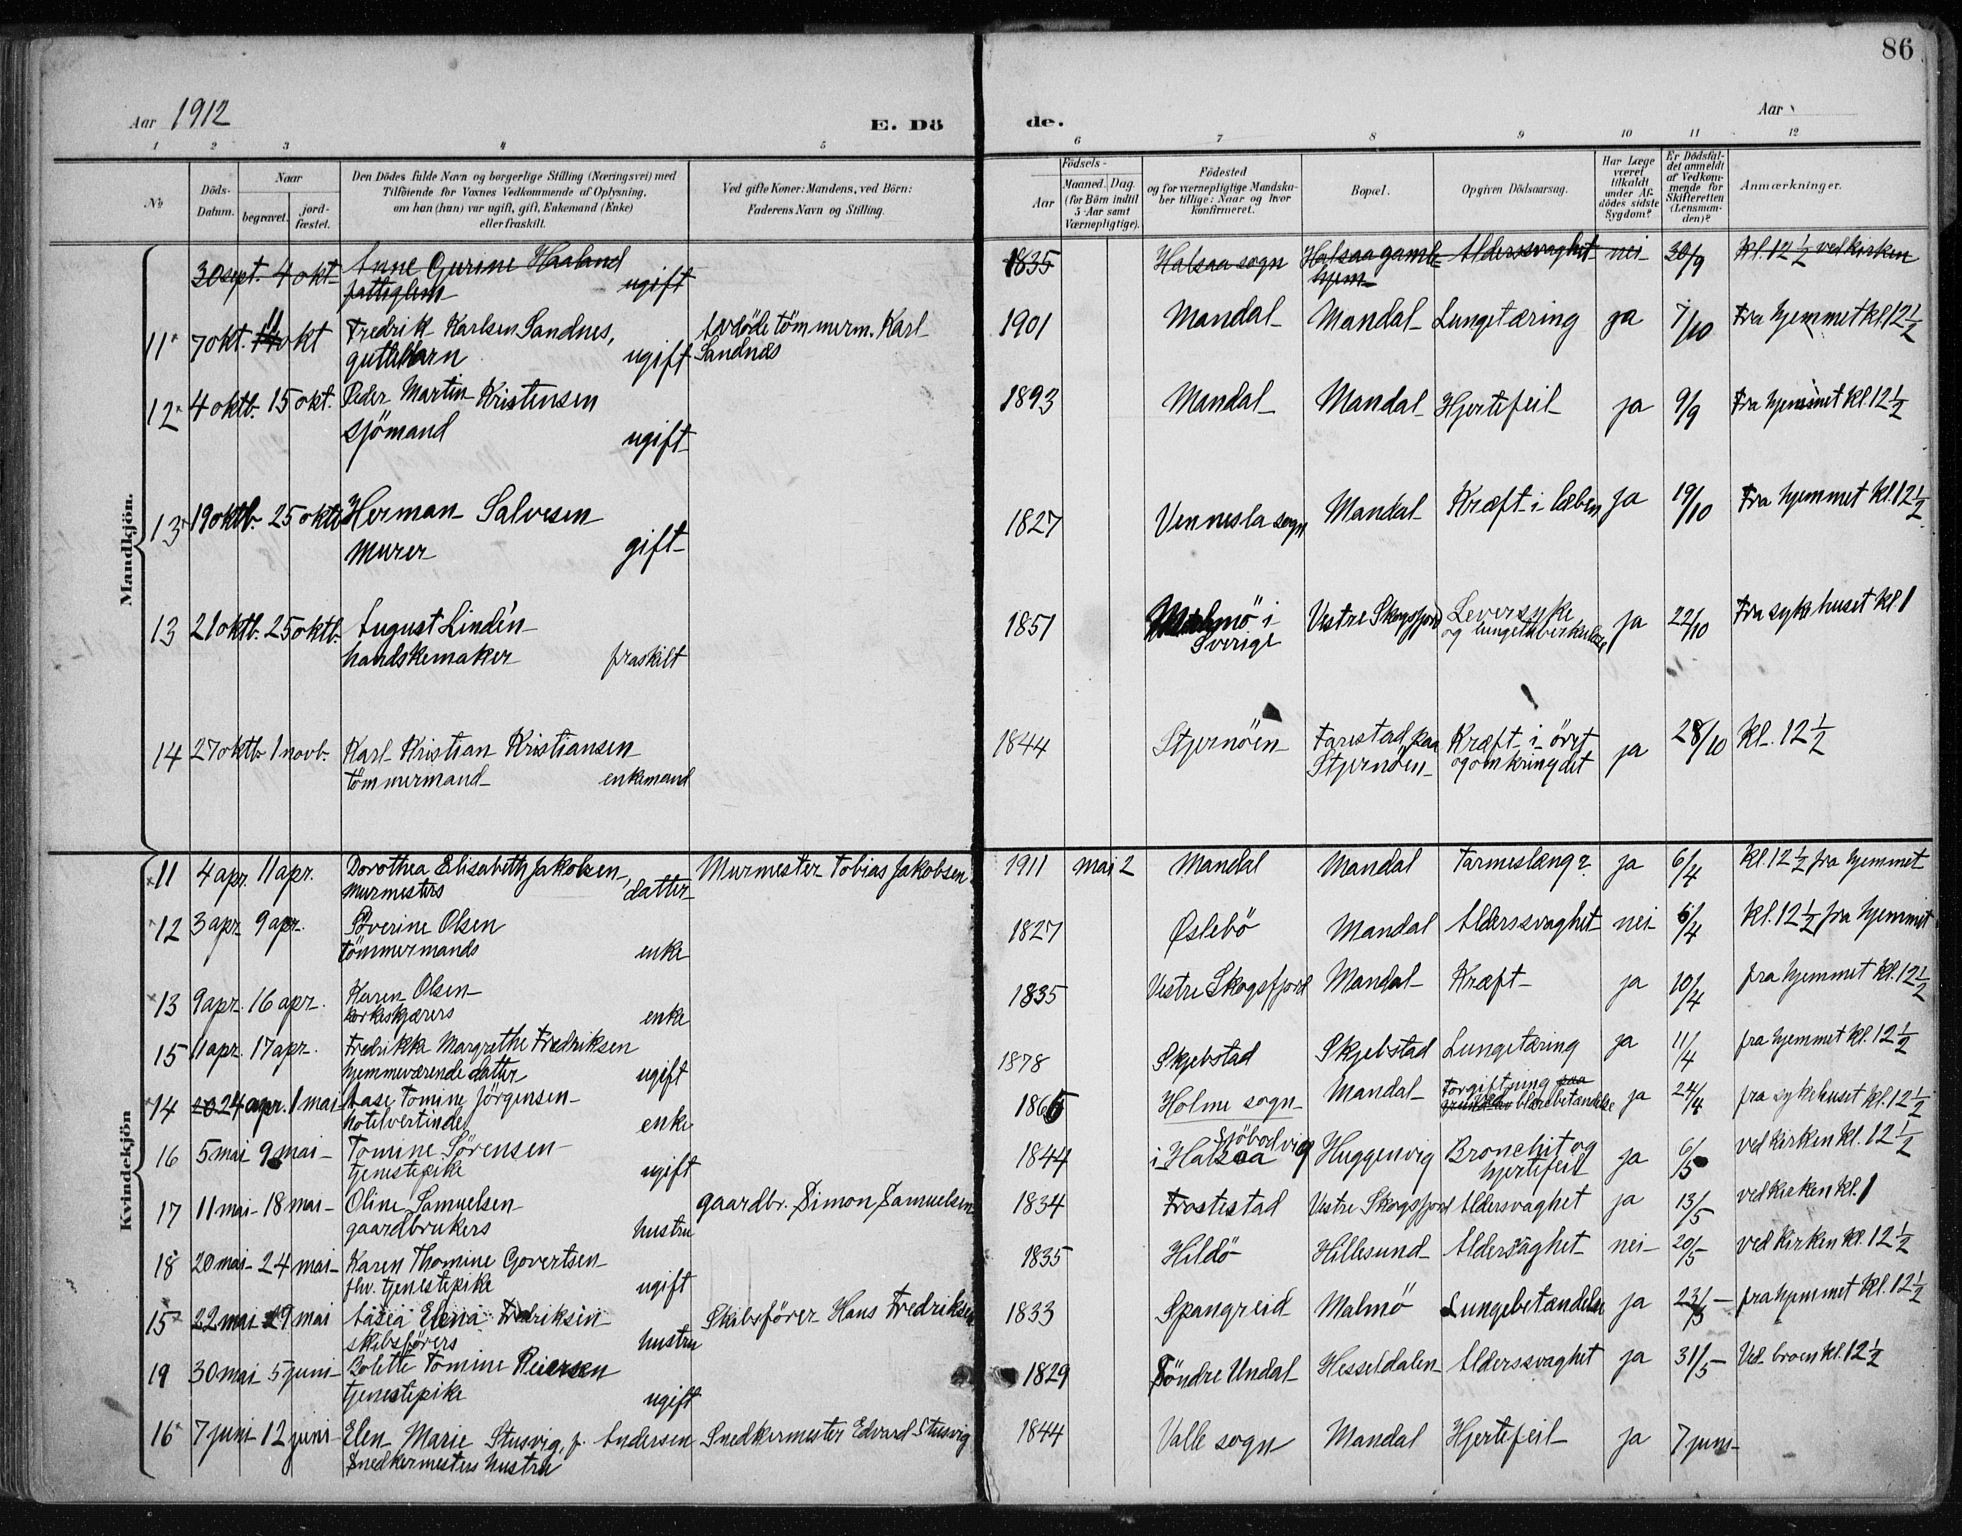 86
Aar 1912
E. Dö
de.
Aar
1 2 3 4 5 6 7 8 9 10 11 12
№
Döds-
Datum.
Naar
begravet.
jord-
fæstet.
Den Dödes fulde Navn og borgerlige Stilling (Næringsvei) med
Tilföiende for Voxnes Vedkommende af Oplysning,
om han (hun) var ugift, gift, Enkemand (Enke)
eller fraskilt.
Ved gifte Koner: Mandens, ved Börn:
Faderens Navn og Stilling.
Födsels-
Aar
Maaned. Dag.
(for Börn indtil
5 Aar samt
Værnepligtige).
Födested
og for værnepligtige Mandska-
ber tillige: Naar og hvor
konfirmeret.
Bopæl.
Opgiven Dödsaarsag.
Har Læge
været
tilkaldt
under Af-
dödes sidste
Sygdom?
Er Dödsfal-
det anmeldt
af Vedkom-
mende for
Skifteretten
(Lensman-
den)?
Anmærkninger.
Mandkjön.
30 sept. 4 okt. Anne Gurine Haaland 1835 Halsaa sogn Halsaa gamle- Alderssvaghet nei 30/9 kl. 12 1/2 ved kirken
fattiglem ugift hjem
11 7 okt. 11 okt Fredrik Karlsen Sandnes, Avdøde tömmerm. Karl 1901 Mandal Mandal Lungetæring ja 7/10 Fra hjemmet kl. 12 1/2
guttebarn ugift Sandnes
12 4 oktb. 15 okt. Peder Martin Kristensen 1893 Mandal Mandal Hjertefeil ja 9/9 Fra hjemmet kl. 12 1/2
sjömand ugift
13 19 oktb. 25 oktb Herman Salvesen 1827 Vennesla sogn Mandal Kræft i læben ja 19/10 Fra hjemmet kl. 12 1/2
murer gift
13 21 oktb. 25 oktb. August Lindén 1851 Malmö i Vestre Skogsfjord Leversyke ja 22/10 Fra sykehuset kl. 1
handskemaker fraskilt Sverige og lungetuberkulose
14 27 oktb. 1 novb. Karl Kristian Kristiansen 1844 Stjernöen Farestad paa Kræft i öret ja 28/10 kl. 12 1/2
tömmermand enkemand Stjernöen og omkring det
Kvindekjön
11 4 apr. 11 apr. Dorothea Elisabeth Jakobsen, Murmester Tobias Jakobsen 1911 mai 2 Mandal Mandal Tarmeslæng? ja 6/4 kl. 12 1/2 fra hjemmet
murmesters datter
12 3 apr 9 apr. Severine Olsen 1827 Øslebö Mandal Alderssvaghet nei 6/4 kl. 12 1/2 fra hjemmet
tömmermands enke
13 9 apr. 16 apr. Karen Olsen 1835 Vestre Skogsfjord Mandal Kræft ja 10/4 fra hjemmet kl. 12 1/2
korkeskjærers enke
15 11 apr. 17 apr. Fredrikka Margrethe Fredriksen 1878 Skjebstad Skjebstad Lungetæring ja 11/4 fra hjemmet kl. 12 1/2
hjemmeværende datter ugift
14 20 24 apr. 1 mai Aase Tomine Jörgensen 1865 Holme sogn Mandal Forgiftning paa ja 24/4 fra sykehuset kl. 12 1/2
hotelvertinde enke blærebetændelse
16 5 mai 9 mai Tomine Sørensen 1844 i Halsaa Sjöbodvig Huggenvig Bronchit og ja 6/5 ved kirken kl. 12 1/2
tjenestepike ugift hjertefeil
17 11 mai 18 mai Oline Samuelsen gaardbr. Simon Samuelsen 1834 Frostestad Vestre Skogsfjord Aldersvaghet ja 13/5 ved kirken kl. 1
gaardbrukers hustru
18 20 mai 24 mai Karen Thomine Govertsen 1835 Hildö Hillesund Aldersvaghet nei 20/5 ved kirken kl. 12 1/2
fhv. tjenestepike ugift
15 22 mai 29 mai Elena Fredriksen Skibsförer Hans Fredriksen 1833 Spangreid Malmö Lungebetændelse ja 23/5 fra hjemmet kl. 12 1/2
skibsförers hustru
19 30 mai 5 juni Bolette Tomine Reiersen 1829 Söndre Undal Hesseldalen Alderssvaghet ja 31/5 Ved broen kl. 12 1/2
tjenestepike ugift
16 7 juni 12 juni Elen Marie Stusvig, f. Andersen Snedkermester Edvard Stusvig 1844 Valle sogn Mandal Hjertefeil ja 7 juni
Snedkermesters hustru